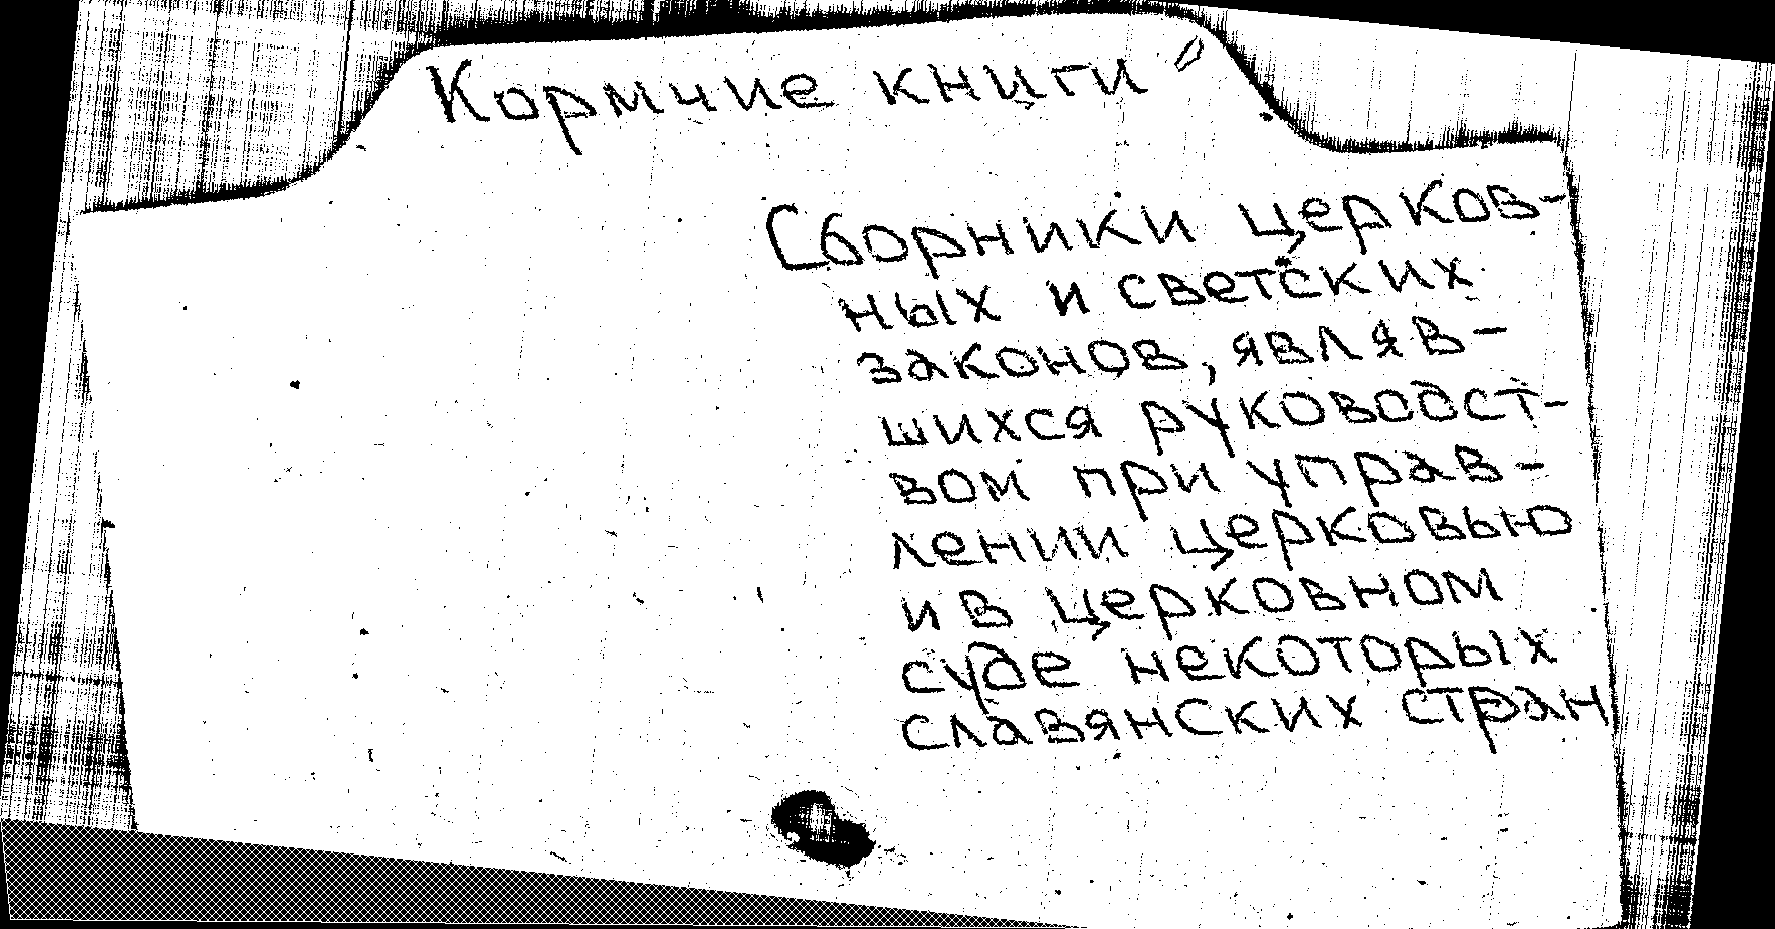 Кормчие книги
Сборники церков-
ных и светских
законов, являв-
шихся руководст-
вом при управ-
лении церковью
и в церковном
суде некоторых
славянских стран